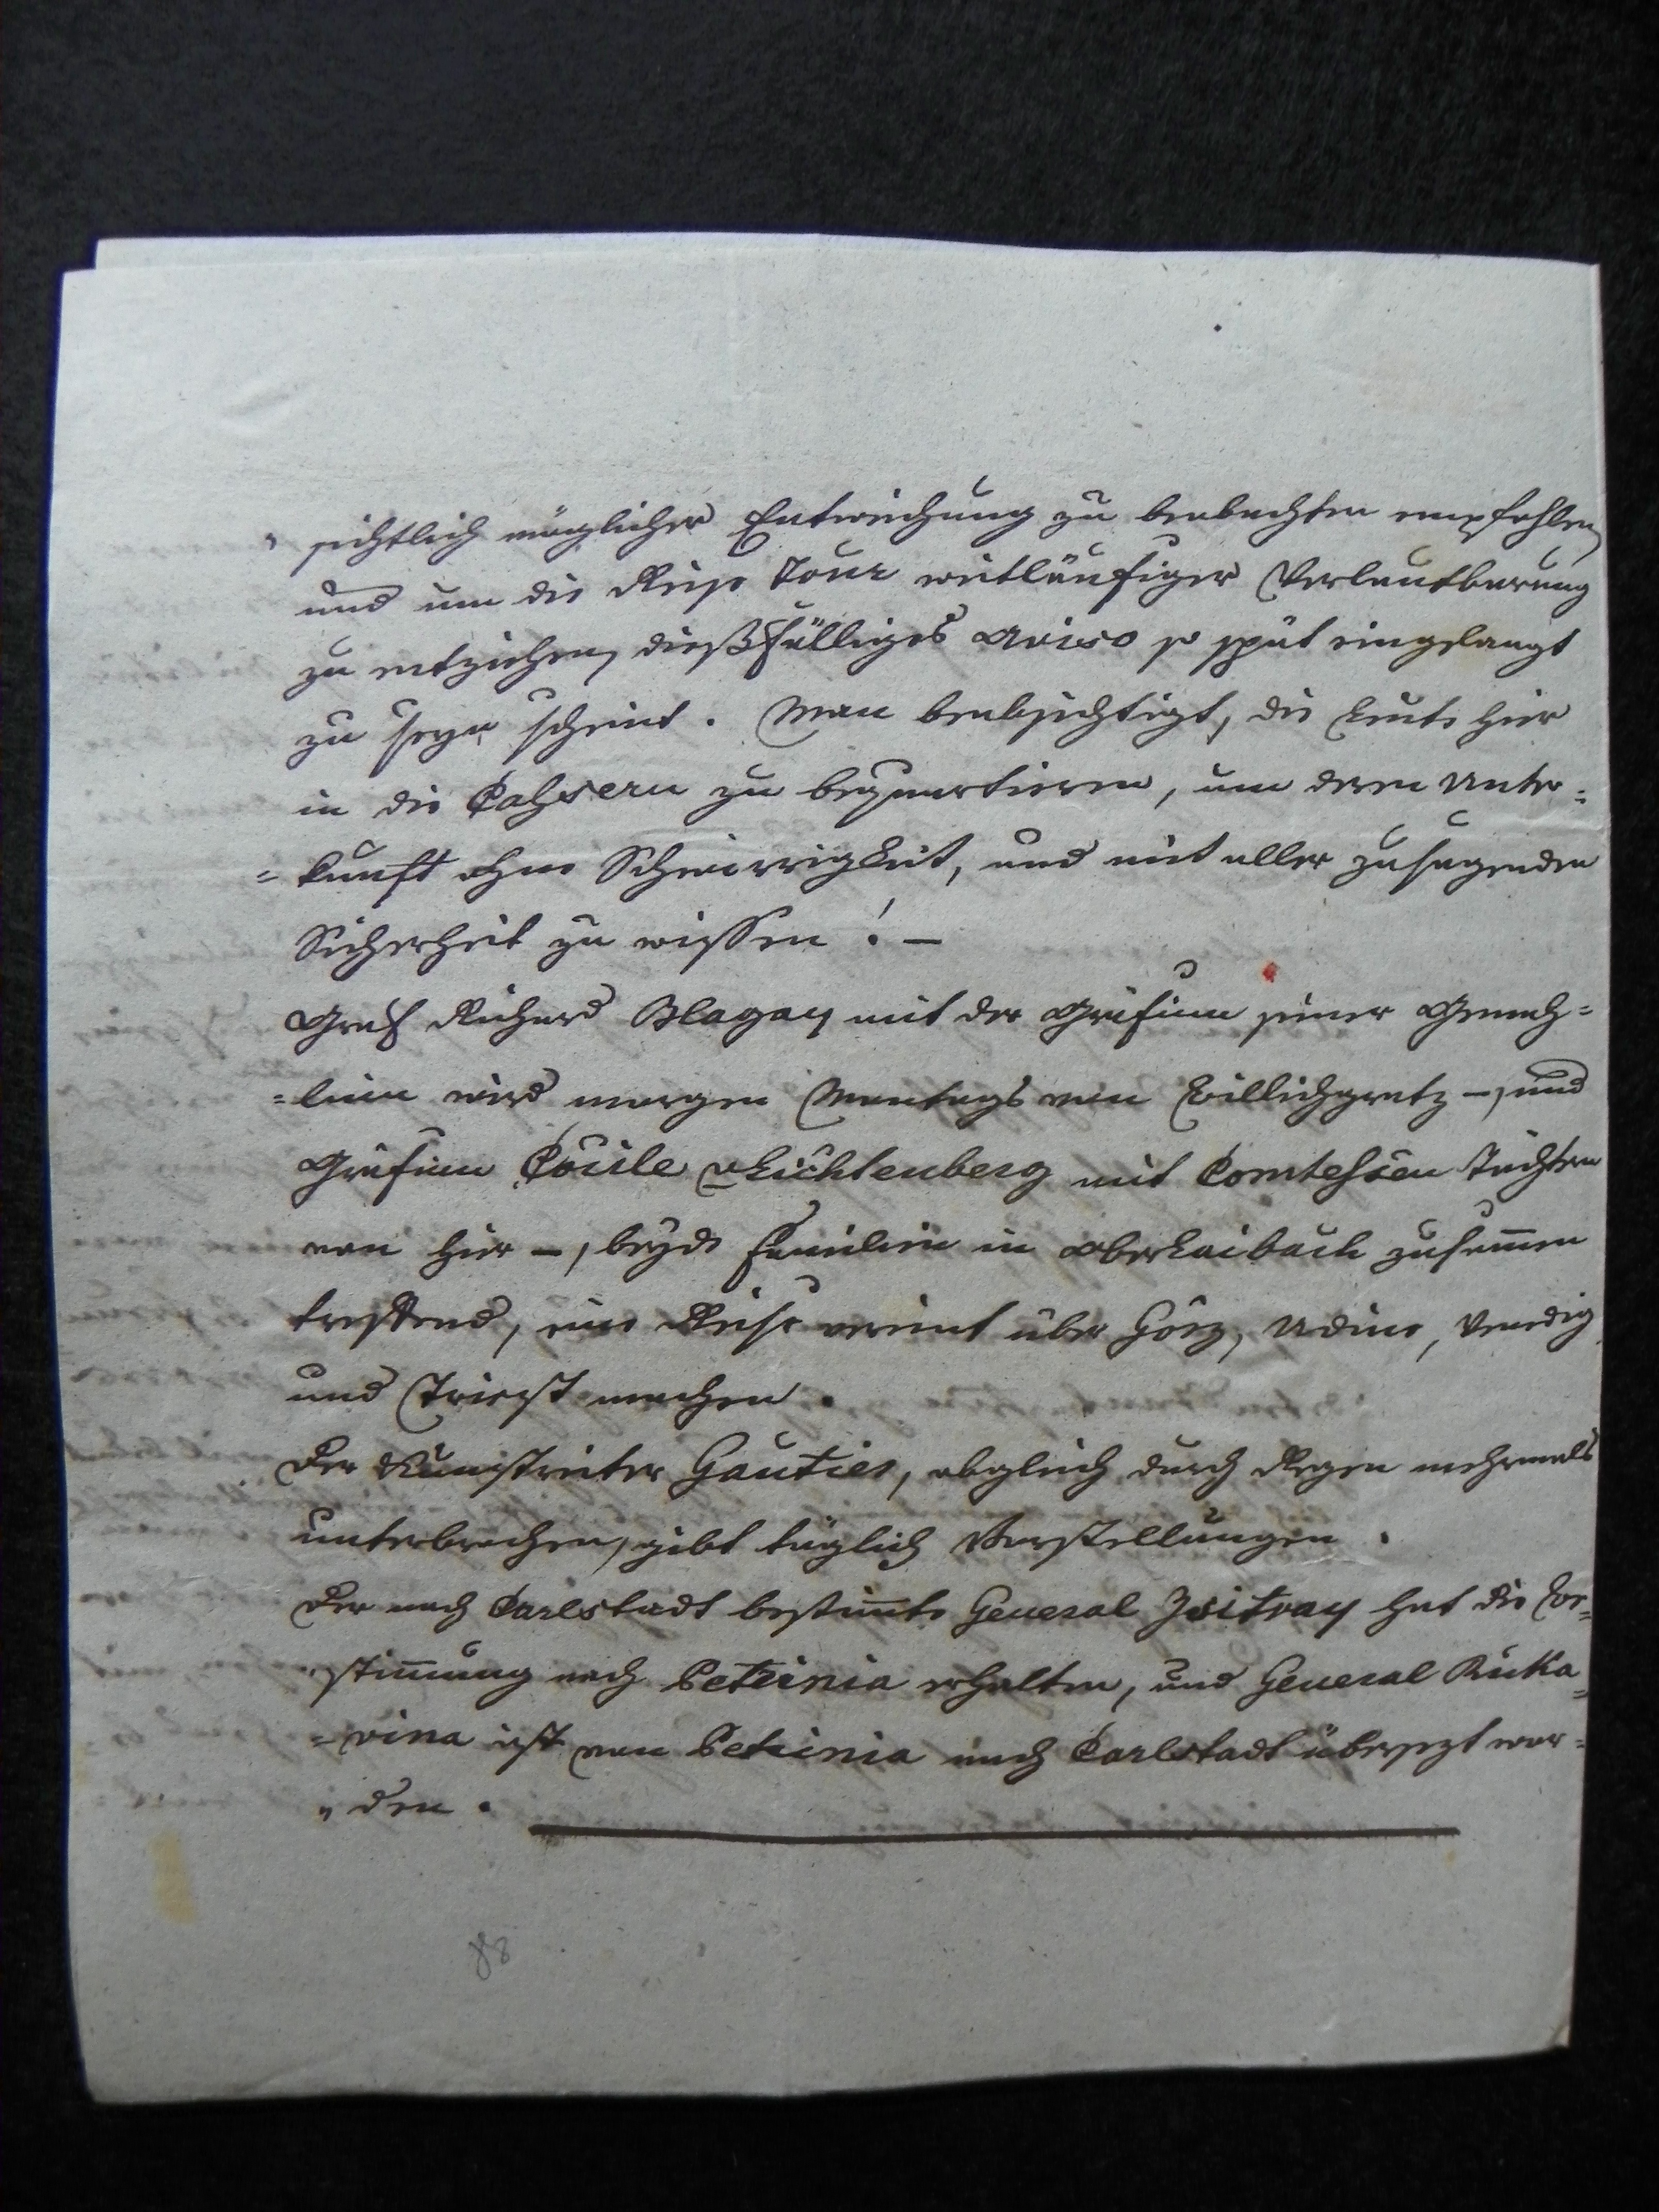 sichtlich möglicher Entweichung zu beobachten empfohlen,
und um die Reise Tour weitläufiger Verlautbarung
zu entziehen, dießfälliges Aviso so spät eingelangt
zu seyn scheint. Man beabsichtigt, die Leute hier
in die Cahsern zu bequartieren, um deren Unter=
=kunft ohne Schwierigkeit, und mit aller zusagenden
Sicherheit zu wissen! –
Graf Richard Blagay mit der Gräfinn seiner Gemah=
=linn wird morgen Montags von Billichgratz –, und
Gräfinn Cäcile v Lichtenberg mit Comtehsen Töchtern
von hier –, beyde Familien in Oberlaibach zusam̅en
treffend, eine Reise vereint über Görz, Udine, Venedig
und Triest machen.
Der Kunstreiter Gautier, obgleich durch Regen mehrmals
unterbrochen, gibt täglich Vorstellungen.
Der nach Carlstadt bestim̅te General Zsitvay hat die Be=
stim̅ung nach Petrinia erhalten, und General Ruka=
=vina ist von Petrinia nach Carlstadt übersezt wor=
"den.
88